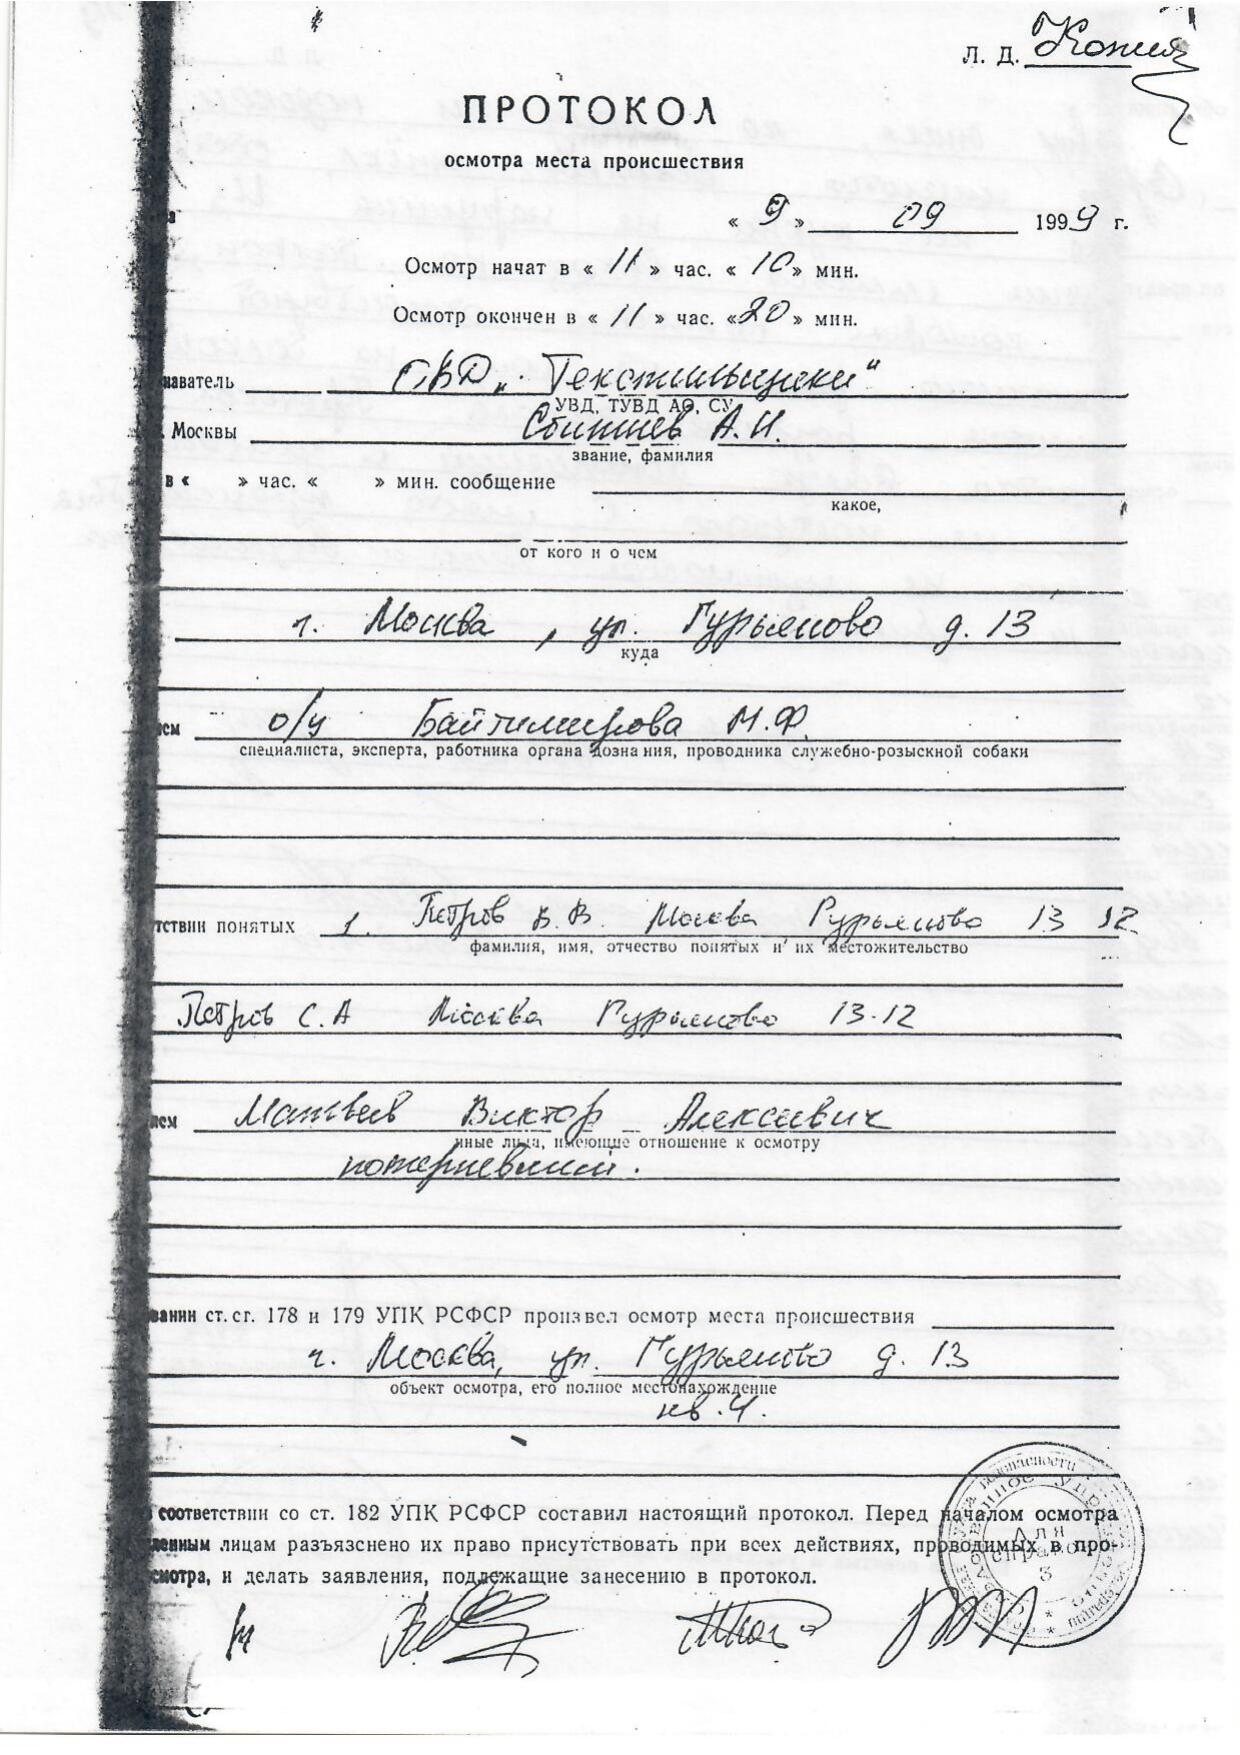 Л. Д. Копия
ПРОТОКОЛ
осмотра места происшествия
« 9 » 09 1999 г.
Осмотр начат в « 11 » час. « 10 » мин.
Осмотр окончен в « 11 » час. « 20 » мин.
наватель ОВД „Текстильщики"
УВД, ТУВД АО, СУ
. Москвы А.И.
звание, фамилия
в « » час. « » мин. сообщение
какое,
от кого и о чем
г. Москва, ул. Гурьяново д. 13
куда
ем о/у Байтимирова М.Ф.
специалиста, эксперта, работника органа дознания, проводника служебно-розыскной собаки
тствии понятых 1. Петров В.В. Москва Гурьяново 13 12
фамилия, имя, отчество понятых и их местожительство
Петров С.А Москва Гурьяново 13-12
ем Матвеев Виктор Алексеевич
иные лица, имеющие отношение к осмотру
потерпевший.
вании ст.ст. 178 и 179 УПК РСФСР произвел осмотр места происшествия
г. Москва, ул. Гурьяново д. 13
объект осмотра, его полное местонахождение
кв. 4.
соответствии со ст. 182 УПК РСФСР составил настоящий протокол. Перед началом осмотра
ленным лицам разъяснено их право присутствовать при всех действиях, проводимых в про-
смотра, и делать заявления, подлежащие занесению в протокол.
Для
справок
3